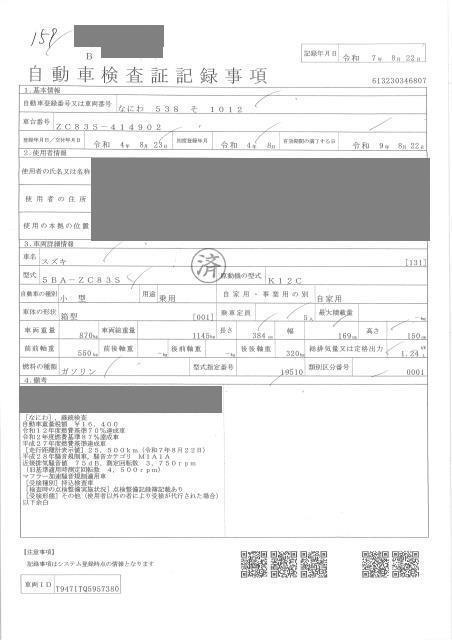 159
B
記録年月日 令和 7年 8月 22日
自動車検査証記録事項
613230346807
1.基本情報
自動車登録番号又は車両番号 なにわ 538 そ 1012
車台番号 ZC83S-414902
登録年月日/交付年月日 令和 4年 8月 23日 初度登録年月 令和 4年 8月 有効期間の満了する日 令和 9年 8月 22日
2.使用者情報
使用者の氏名又は名称
使用者の住所
使用の本拠の位置
3.車両詳細情報
車名 スズキ [131]
済
型式 5BA-ZC83S 原動機の型式 K12C
自動車の種別 小型 用途 乗用 自家用・事業用の別 自家用
車体の形状 箱型 [001] 乗車定員 5人 最大積載量 -kg
車両重量 870kg 車両総重量 1145kg 長さ 384cm 幅 169cm 高さ 150cm
前前軸重 550kg 前後軸重 -kg 後前軸重 -kg 後後軸重 320kg 総排気量又は定格出力 1.24 kW L
燃料の種類 ガソリン 型式指定番号 19510 類別区分番号 0001
4.備考
[なにわ],継続検査
自動車重量税額 ¥16,400
令和12年度燃費基準70%達成車
令和2年度燃費基準87%達成車
平成27年度燃費基準達成車
[走行距離計表示値]25,500km(令和7年8月22日)
平成28年騒音規制車,騒音カテゴリ M1A1A
近接排気騒音値 75dB,測定回転数 3,750rpm
(旧基準適用時測定回転数 4,500rpm)
マフラー加速騒音規制適用車
[受検種別]持込検査車
[検査時の点検整備実施状況]点検整備記録簿記載あり
[受検形態]その他(使用者以外の者により受検が代行された場合)
以下余白
[注意事項]
記録事項はシステム登録時点の情報となります
車両ID T9471TQ5957380